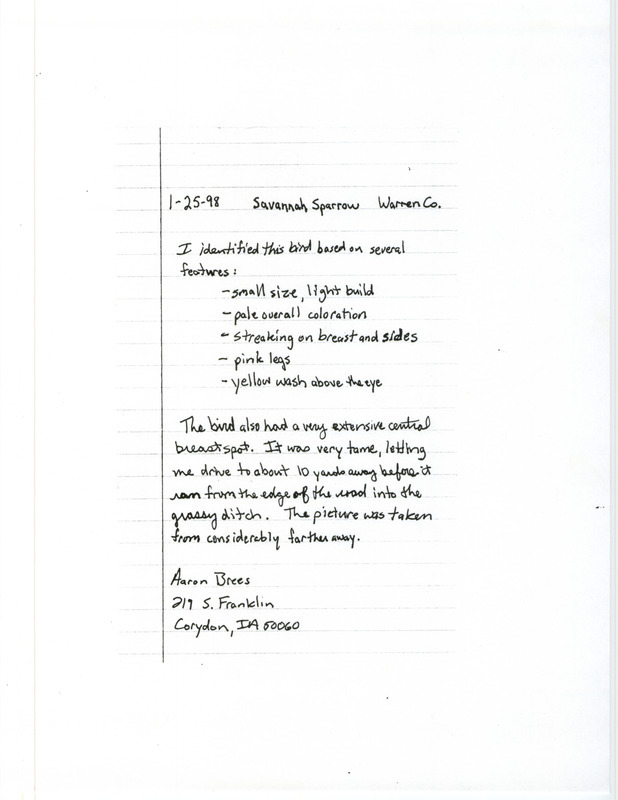 1-25-98 Savannah Sparrow Warren Co.
I identified this bird based on several
features:
- small size, light build
- pale overall coloration
- streaking on breast and sides
- pink legs
- yellow wash above the eye
The bird also had a very extensive central
breast spot. It was very tame, letting
me drive to about 10 yards away before it
ran from the edge of the road into the
grassy ditch. The picture was taken
from considerably farther away.
Aaron Brees
219 S. Franklin
Corydon, IA 50060